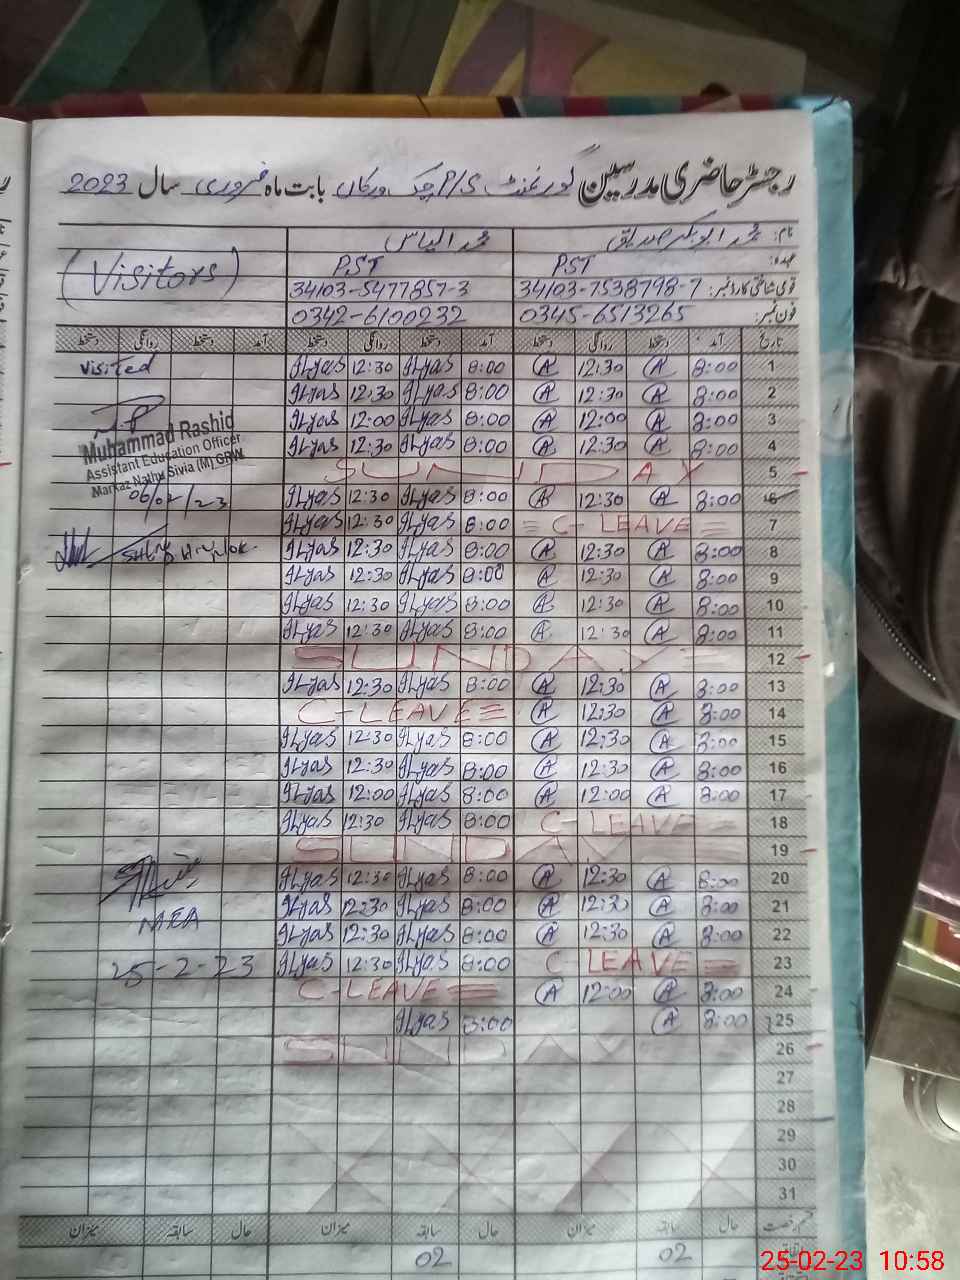 رجسٹر حاضری مدرسین گورنمنٹ P/S چک ورکاں بابت ماہ فروری سال 2023
نام: محمد ابوبکر صدیق محمد الیاس
عہدہ: PST PST (Visitors)
قومی شناختی کارڈ نمبر: 34103-7538798-7 34103-5477857-3
فون نمبر: 0345-6513265 0342-6100232
تاریخ آمد دستخط روانگی دستخط آمد دستخط روانگی دستخط آمد دستخط روانگی دستخط
1 8:00 A 12:30 A 8:00 Ilyas 12:30 Ilyas Visited
2 8:00 A 12:30 A 8:00 Ilyas 12:30 Ilyas
3 8:00 A 12:00 A 8:00 Ilyas 12:00 Ilyas
4 8:00 A 12:30 A 8:00 Ilyas 12:30 Ilyas
Muhammad Rashid
Assistant Education Officer
Markaz Nathu Sivia (M) GRW
5 SUNDAY
6 8:00 A 12:30 A 8:00 Ilyas 12:30 Ilyas 06/02/23
7 C-LEAVE 8:00 Ilyas 12:30 Ilyas
8 8:00 A 12:30 A 8:00 Ilyas 12:30 Ilyas
9 8:00 A 12:30 A 8:00 Ilyas 12:30 Ilyas
10 8:00 A 12:30 A 8:00 Ilyas 12:30 Ilyas
11 8:00 A 12:30 A 8:00 Ilyas 12:30 Ilyas
12 SUNDAY
13 8:00 A 12:30 A 8:00 Ilyas 12:30 Ilyas
14 8:00 A 12:30 A C-LEAVE
15 8:00 A 12:30 A 8:00 Ilyas 12:30 Ilyas
16 8:00 A 12:30 A 8:00 Ilyas 12:30 Ilyas
17 8:00 A 12:00 A 8:00 Ilyas 12:00 Ilyas
18 C LEAVE 8:00 Ilyas 12:30 Ilyas
19 SUNDAY
20 8:00 A 12:30 A 8:00 Ilyas 12:30 Ilyas
21 8:00 A 12:30 A 8:00 Ilyas 12:30 Ilyas MEA
22 8:00 A 12:30 A 8:00 Ilyas 12:30 Ilyas
23 C LEAVE 8:00 Ilyas 12:30 Ilyas 25-2-23
24 8:00 A 12:00 A C-LEAVE
25 8:00 A 8:00 Ilyas
26 SUND
27
28
29
30
31
حال سابقہ میزان حال سابقہ میزان حال سابقہ میزان
02 02
25-02-23 10:58